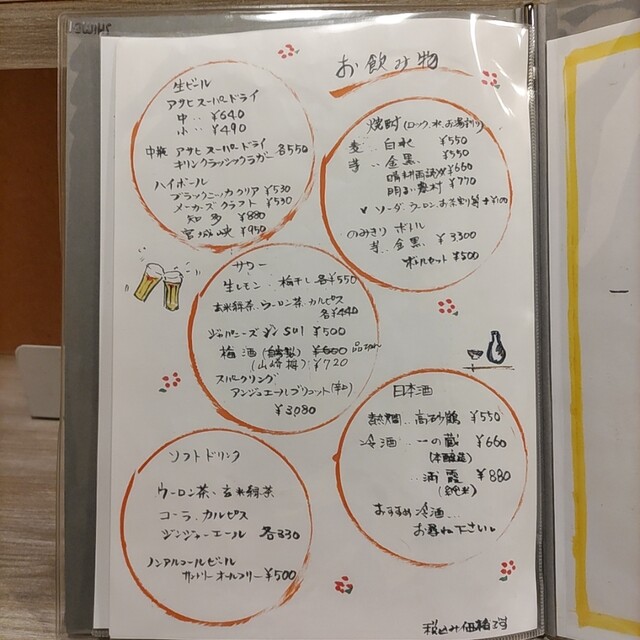 お飲み物
生ビール
アサヒスーパードライ
中 ‥ ¥640
小 ‥ ¥490
中瓶 アサヒスーパードライ
キリンクラシックラガー 各550
ハイボール
ブラックニッカクリア ¥530
メーカーズクラフト ¥530
知多 ¥880
宮城峡 ¥950
焼酎 (ロック、水、お湯割り)
麦 ‥ 白水 ¥550
芋 ‥ 金黒 ¥550
晴耕雨読 ¥660
明るい農村 ¥770
ソーダ、ウーロン、お茶割り等 +¥100
のみきり ボトル
芋 ‥ 金黒 ¥3300
ボトルセット ¥500
サワー
生レモン 梅干し 各¥550
玄米緑茶、ウーロン茶、カルピス
各¥440
ジャパニーズジン SUI ¥500
梅酒 (自家製) ¥600
(山崎梅) ¥720
スパークリング
アンジュエールブリュット(辛口)
¥3080
日本酒
熱燗 ‥ 高砂鶴 ¥550
冷酒 ‥ 一の蔵 ¥660
(本醸造)
‥ 満霞 ¥880
(純米)
おすすめ冷酒 ‥
お尋ね下さい。
ソフトドリンク
ウーロン茶、玄米緑茶
コーラ、カルピス
ジンジャーエール 各330
ノンアルコールビール
サントリーオールフリー ¥500
税込み価格です